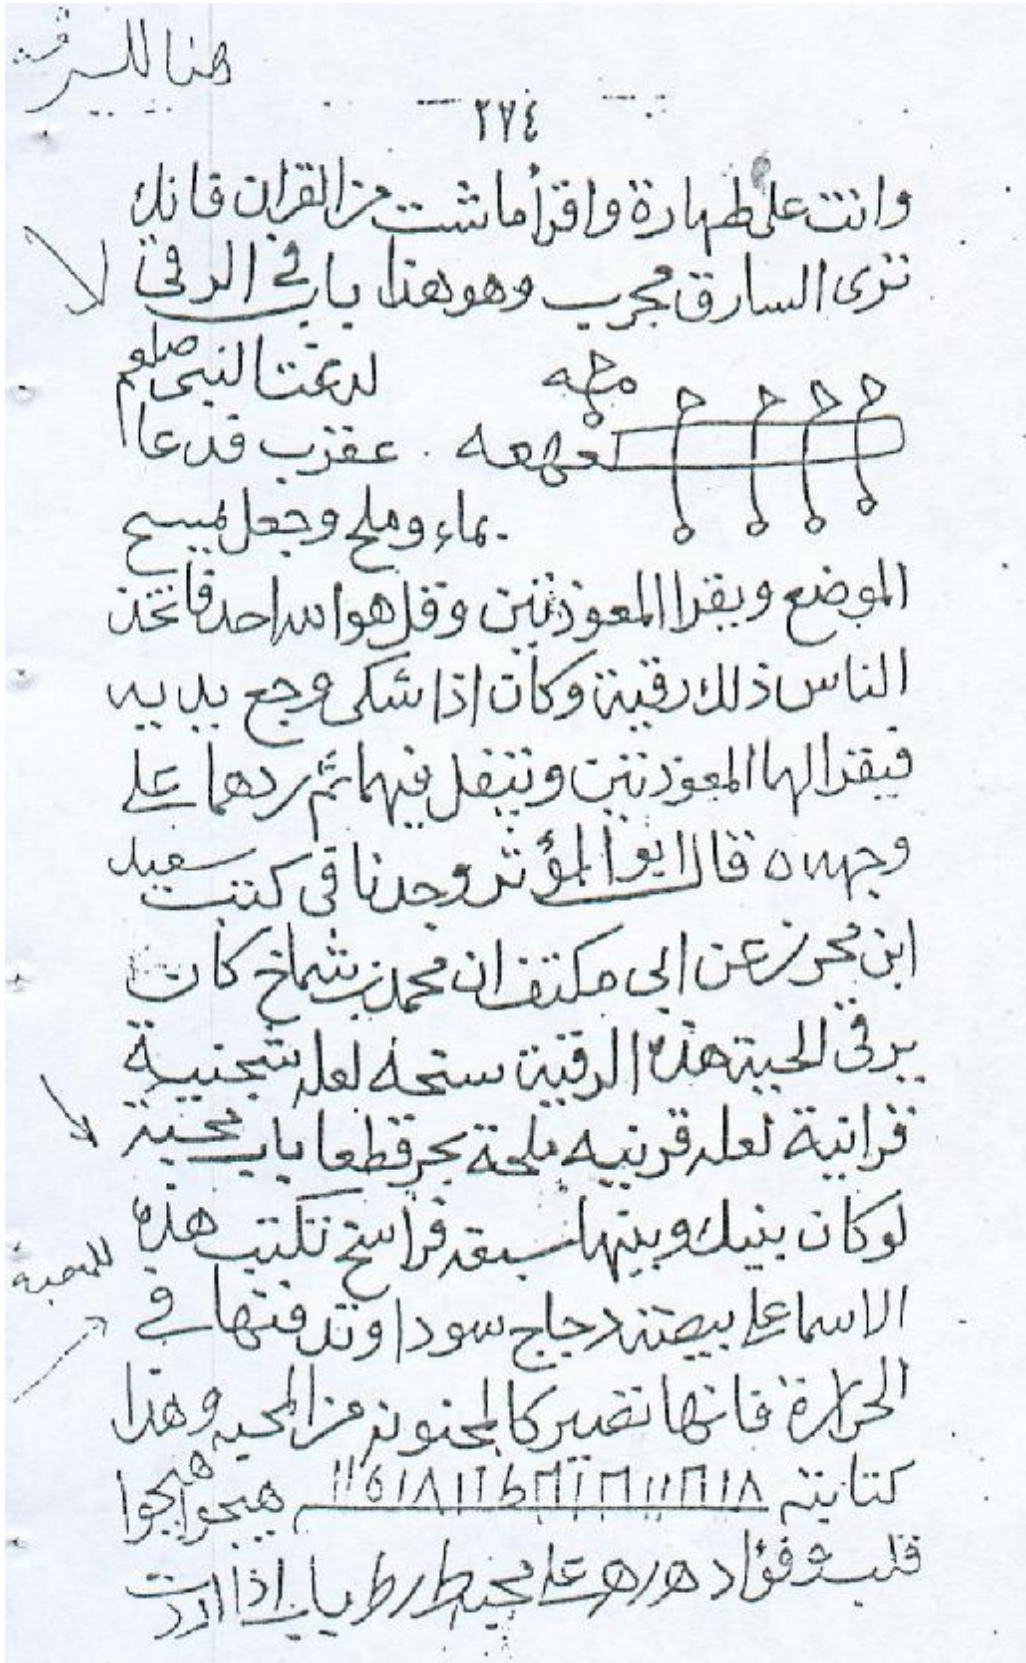 هنا للسرقة
٢٧٤
وانت على طهارة واقرأ ما شئت من القران فانك
ترى السارق مجرب وهو هذا باب في الرقى
لدغت النبي صلعم
عقرب فدعا
بماء وملح وجعل يمسح
الموضع ويقرا المعوذتين وقل هو الله احد فاتخذ
الناس ذلك رقية وكان اذا شكى وجع يديه
فيقرا لهما المعوذتين ويتفل فيهما ثم يردهما على
وجهه قال ابو المؤثر وجدنا في كتب سعيد
ابن محرز عن ابي مكتف ان محمد بن شماخ كان
يرقي الحية هذه الرقية سجه لعله شجنية
قرانية لعله قرنيه ملحة بحر قطعا باب محبة
لو كان بينك وبينها سبعه فراسخ تكتب هذه
للمحبه
الاسما على بيضة دجاج سودا وتدفنها في
الحرارة فانها تصير كالمجنونه من المحبه وهذا
كتابته
هيجوا هيجوا
قلب وفؤاد على باب اذا اردت